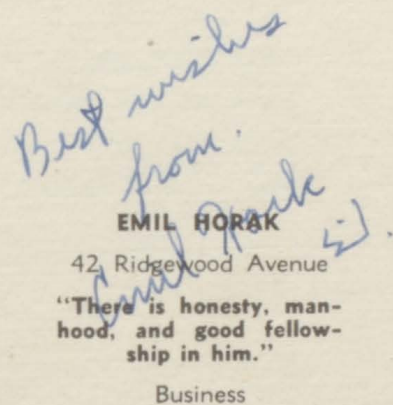 Best wishes
from.
Emil Horak
EMIL HORAK
42 Ridgewood Avenue
"There is honesty, man-
hood, and good fellow-
ship in him."
Business